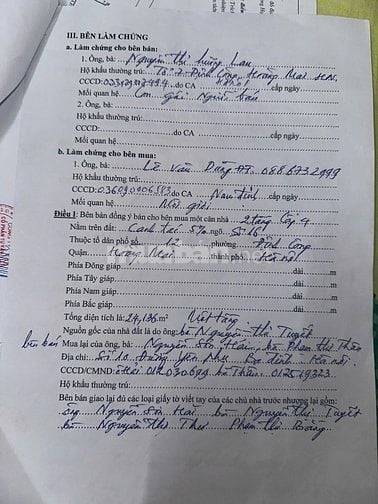 III. BÊN LÀM CHỨNG
a. Làm chứng cho bên bán:
1. Ông, bà: Nguyễn thị Lan
Hộ khẩu thường trú: Tổ 7 Định Công, Hoàng Mai HN
CCCD: do CA cấp ngày
Mối quan hệ Con gái Người bán
2. Ông, bà:
Hộ khẩu thường trú:
CCCD: do CA cấp ngày
Mối quan hệ
b. Làm chứng cho bên mua:
1. Ông, bà: Lê Văn Dũng
Hộ khẩu thường trú:
CCCD: do CA Nam định cấp ngày
Mối quan hệ Môi giới
Điều 1: Bên bán đồng ý bán cho bên mua một căn nhà 2 tầng Cấp 4
Nằm trên đất: Canh tác 5% ngõ Số
Thuộc tổ dân phố số 12 phường Định Công
Quận Hoàng Mai thành phố Hà nội
Phía Đông giáp dài m
Phía Tây giáp dài m
Phía Nam giáp dài m
Phía Bắc giáp dài m
Tổng diện tích là: 24,136 m²
Nguồn gốc của nhà đất là do ông: bà Nguyễn thị Tuyết
bên bán Mua lại của ông, bà: Nguyễn Sơn Hải, bà Phạm thị
Địa chỉ: Yên Phụ Ba đình Hà nội
CCCD/CMND:
Hộ khẩu thường trú:
Bên bán giao lại đủ các loại giấy tờ viết tay của các chủ nhà trước nhượng lại gồm:
ông Nguyễn Sơn Hải bà Nguyễn thị Tuyết
bà Nguyễn thị Thư Phạm thị Bằng